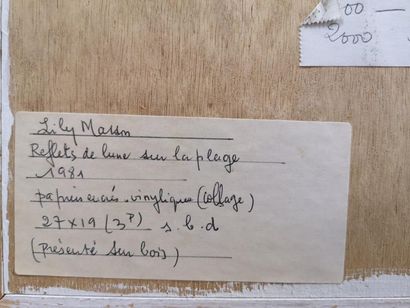 00 —
2000
Lily Masson
Reflets de lune sur la plage
1981
papiers encrés. vinyliques (collage)
27x19 (3P) s.b.d
(présenté sur bois)